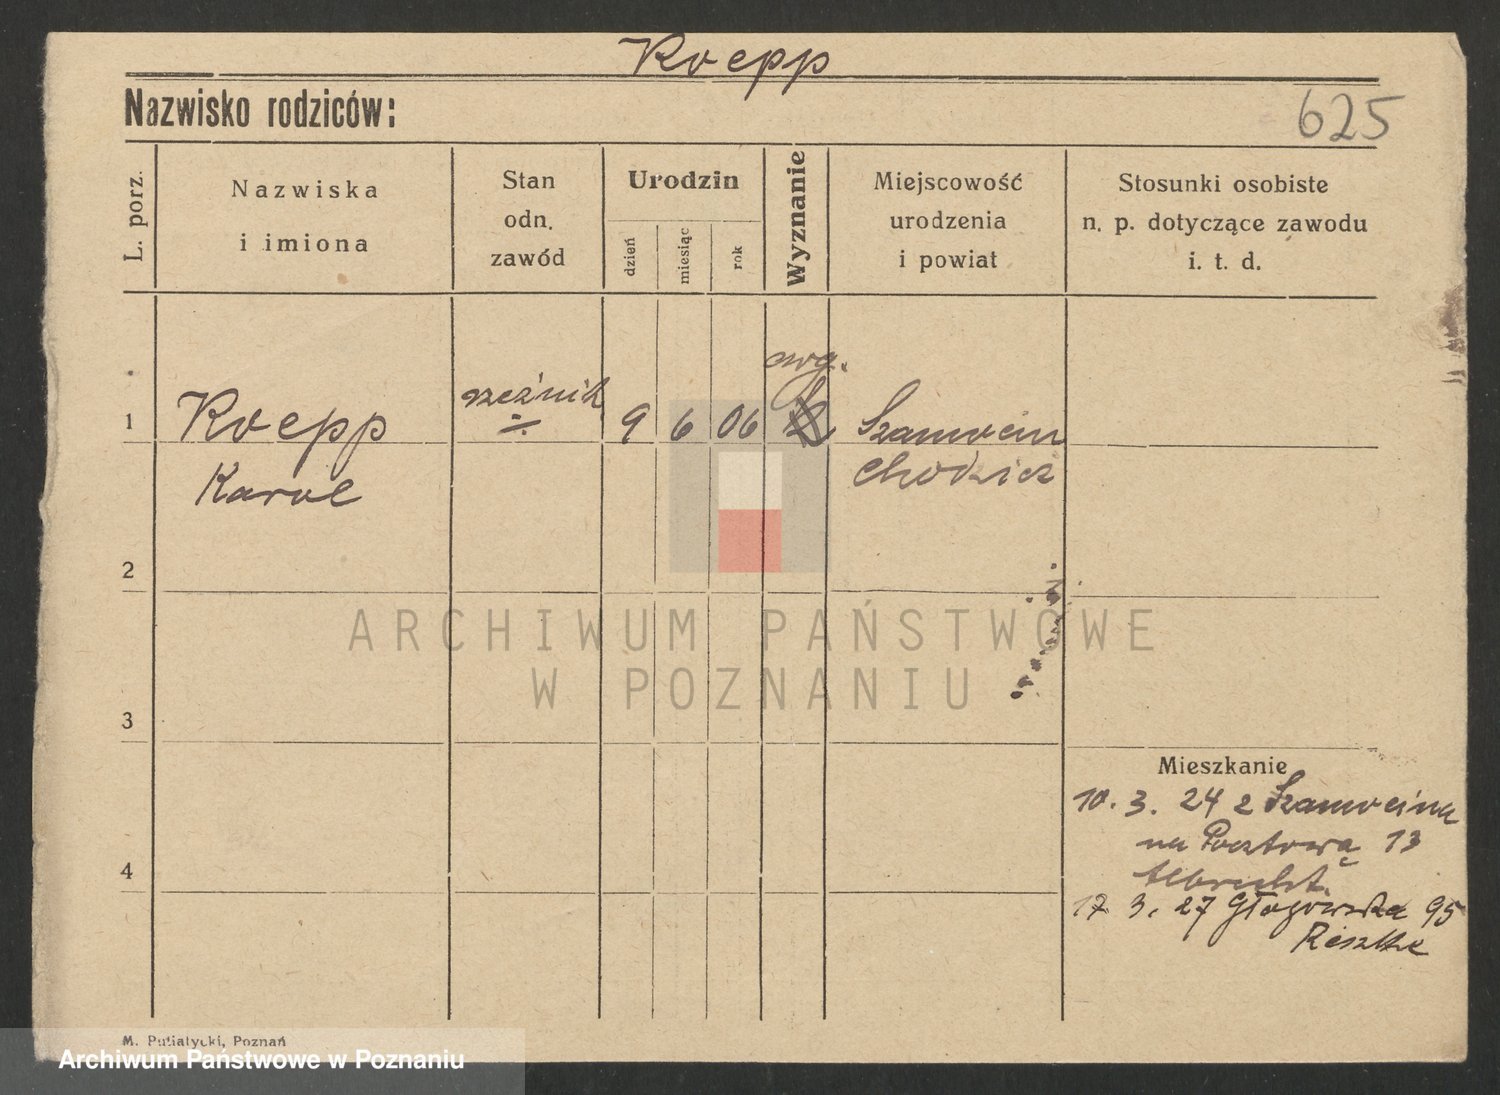 Koepp
Nazwisko rodziców:
625
L. porz.
Nazwiska
i imiona
Stan
odn.
zawód
Urodzin
dzień
miesiąc
rok
Wyznanie
Miejscowość
urodzenia
i powiat
Stosunki osobiste
n. p. dotyczące zawodu
i. t. d.
1
Koepp
Karol
rzeźnik
9 6 06
ewg.
Szamocin
Chodzież
2
3
4
Mieszkanie
10. 3. 24 z Szamocina
na Pocztową 13
Albrecht.
17 3. 27 Głogowska 95
ARCHIWUM PAŃSTWOWE
W POZNANIU
M. Putiatycki, Poznań
Archiwum Państwowe w Poznaniu